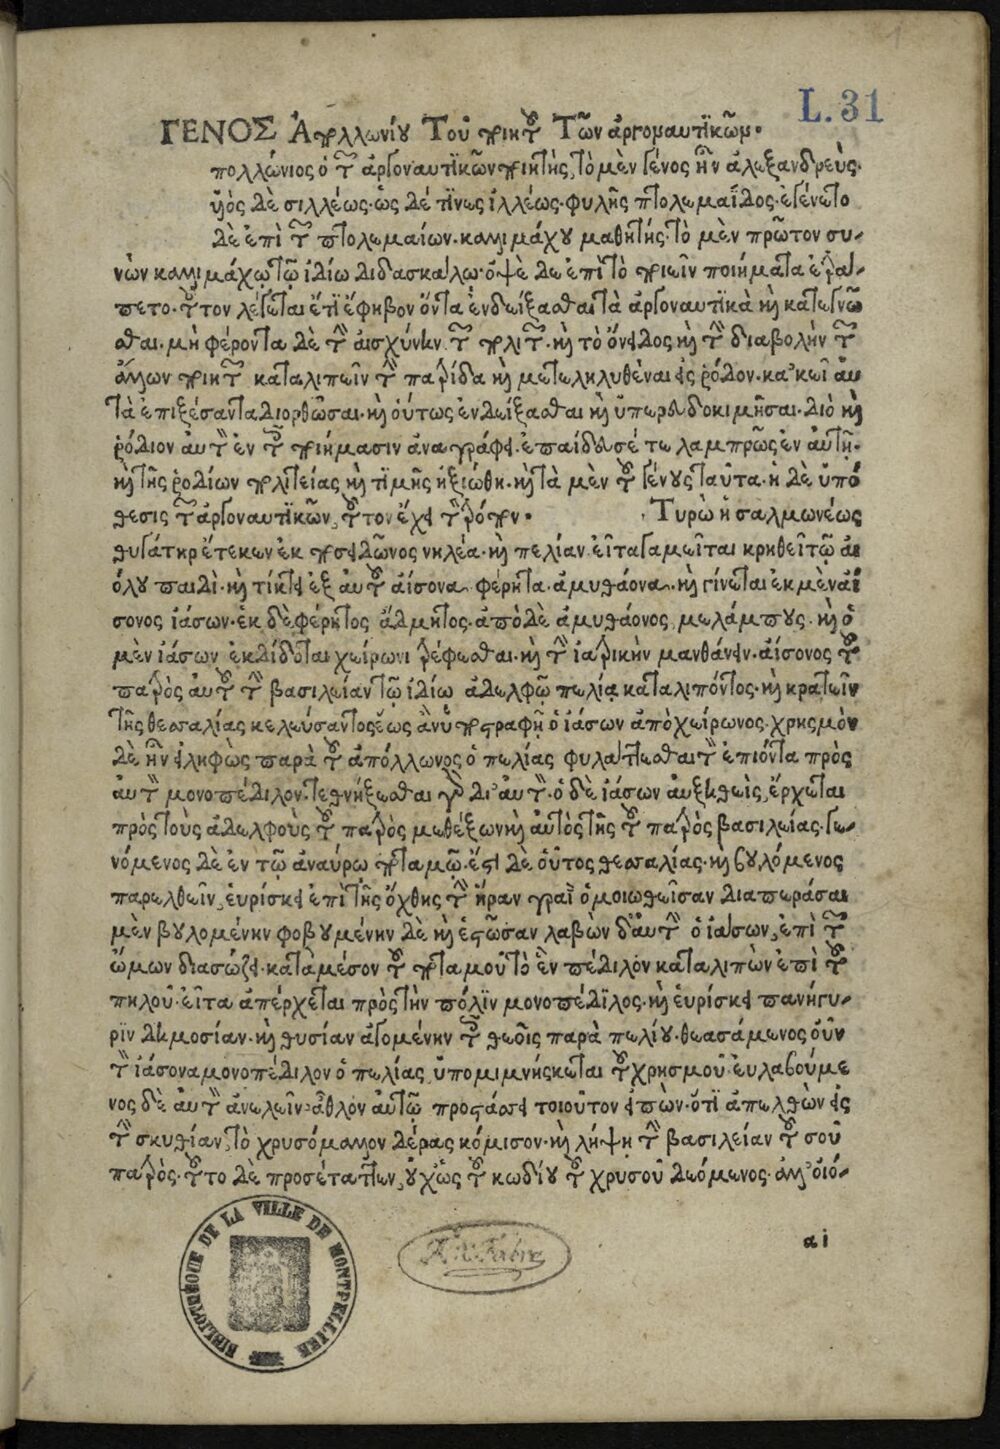 L. 31
ΓΕΝΟΣ Ἀπολλωνίου Τοῦ ποιητοῦ Τῶν ἀργοναυτικῶν.
πολλώνιος ὁ τῶν ἀργοναυτικῶν ποιητὴς, τὸ μὲν γένος ἦν ἀλεξανδρεὺς.
ὑιὸς δὲ σιλλέως. ὡς δέ τινες ἰλλέως. φυλῆς πτολεμαΐδος. ἐγένετο
δὲ ἐπὶ τῶν πτολεμαίων. καλλιμάχου μαθητής. τὸ μὲν πρῶτον συ-
νὼν καλλιμάχῳ τῷ ἰδίω διδασκάλω. ὀψὲ δὲ ἐπὶ τὸ ποιεῖν ποιήματα ἐτρά-
πετο. τοῦτον λέγεται ἔτι ἔφηβον ὄντα ἐνδείξασθαι τὰ ἀργοναυτικὰ καὶ κατεγνῶ
σθαι. μὴ φέροντα δὲ τὴν ἀισχύνην τῶν πολιτῶν. καὶ τὸ ὄνειδος καὶ τὴν διαβολὴν τῶν
ἄλλων ποιητῶν καταλιπεῖν τὴν πατρίδα καὶ μετεληλυθέναι εἰς ῥόδον. κᾀκεῖ ἀυ
τὰ ἐπιξέσαντα διορθῶσαι. καὶ οὕτως ἐνδείξασθαι καὶ ὑπερευδοκιμῆσαι. διὸ καὶ
ῥόδιον ἀυτὸν ἐν τοῖς ποιήμασιν ἀναγράφει. ἐπαίδευσέ τε λαμπρῶς ἐν ἀυτῇ.
καὶ τῆς ῥοδίων πολιτείας καὶ τιμῆς ἠξιώθη. καὶ τὰ μὲν τοῦ γένους ταῦτα. ἡ δὲ ὑπό
θεσις τῶν ἀργοναυτικῶν, τοῦτον ἔχει τὸν τρόπον. Τυρὼ ἡ σαλμωνέως
θυγάτηρ ἔτεκεν ἐκ ποσειδῶνος νηλέα. καὶ πελίαν. εἶτα γαμεῖται κρηθεῖ τῷ ἀι
όλου παιδὶ. καὶ τίκτει ἐξ ἀυτοῦ ἀίσονα. φέρητα. ἀμυθάονα. καὶ γίνεται ἐκ μὲν ἀί
σονος ἰάσων. ἐκ δὲ φέρητος ἄδμητος. ἀπὸ δὲ ἀμυθάονος, μελάμπους. καὶ ὁ
μὲν ἰάσων ἐκδίδοται χείρωνι τρέφεσθαι. καὶ τὴν ἰατρικὴν μανθάνειν. ἀίσονος τοῦ
πατρὸς ἀυτοῦ τὴν βασιλείαν τῷ ἰδίω ἀδελφῷ πελίᾳ καταλιπόντος. καὶ κρατεῖν
τῆς θεσσαλίας κελεύσαντος, ἕως ἂν ὑποστραφῇ ὁ ἰάσων ἀπὸ χείρωνος. χρησμὸν
δὲ ἦν εἰληφὼς παρὰ τοῦ ἀπόλλωνος ὁ πελίας φυλάττεσθαι τὸν ἐπιόντα πρὸς
ἀυτὸν μονοπέδιλον. τεθνήξεσθαι γὰρ δι' ἀυτὸν. ὁ δὲ ἰάσων ἀυξηθεὶς, ἔρχεται
πρὸς τοὺς ἀδελφοὺς τοῦ πατρὸς μεθέξων καὶ ἀυτὸς τῆς τοῦ πατρὸς βασιλείας. γε-
νόμενος δὲ ἐν τῷ ἀναύρω ποταμῷ. ἔστι δὲ οὗτος θεσσαλίας. καὶ βουλόμενος
παρελθεῖν, ἑυρίσκει ἐπὶ τῆς ὄχθης τὴν ἥραν γραῒ ὁμοιωθεῖσαν διαπεράσαι
μὲν βουλομένην φοβουμένην δὲ καὶ ἑστῶσαν λαβὼν δ' ἀυτὴν ὁ ἰάσων, ἐπὶ τῶν
ὤμων διασώζει. κατὰ μέσον τοῦ ποταμοῦ τὸ ἓν πέδιλον καταλιπὼν ἐπὶ τοῦ
πηλοῦ. εἶτα ἀπέρχεται πρὸς τὴν πόλϊν μονοπέδιλος. καὶ ἑυρίσκει πανήγυ-
ρϊν δημοσίαν. καὶ θυσίαν ἀγομένην τοῖς θεοῖς παρὰ πελίου. θεασάμενος οὖν
τὸν ἰάσονα μονοπέδιλον ὁ πελίας, ὑπομιμνήσκεται τοῦ χρησμοῦ. ἐυλαβούμε
νος δὲ ἀυτὸν ἀνελεῖν. ἆθλον ἀυτῶ προστάσσει τοιοῦτον εἰπὼν. ὅτι ἀπελθὼν εἰς
τὴν σκυθίαν, τὸ χρυσόμαλλον δέρας κόμισον. καὶ λήψῃ τὴν βασιλείαν τοῦ σοῦ
πατρὸς. τοῦτο δὲ προσέταττεν, οὐχ ὡς τοῦ κωδίου τοῦ χρυσοῦ δεόμενος. ἀλλ' οἰό-
αi
BIBLIOTHÈQUE DE LA VILLE DE MONTPELLIER